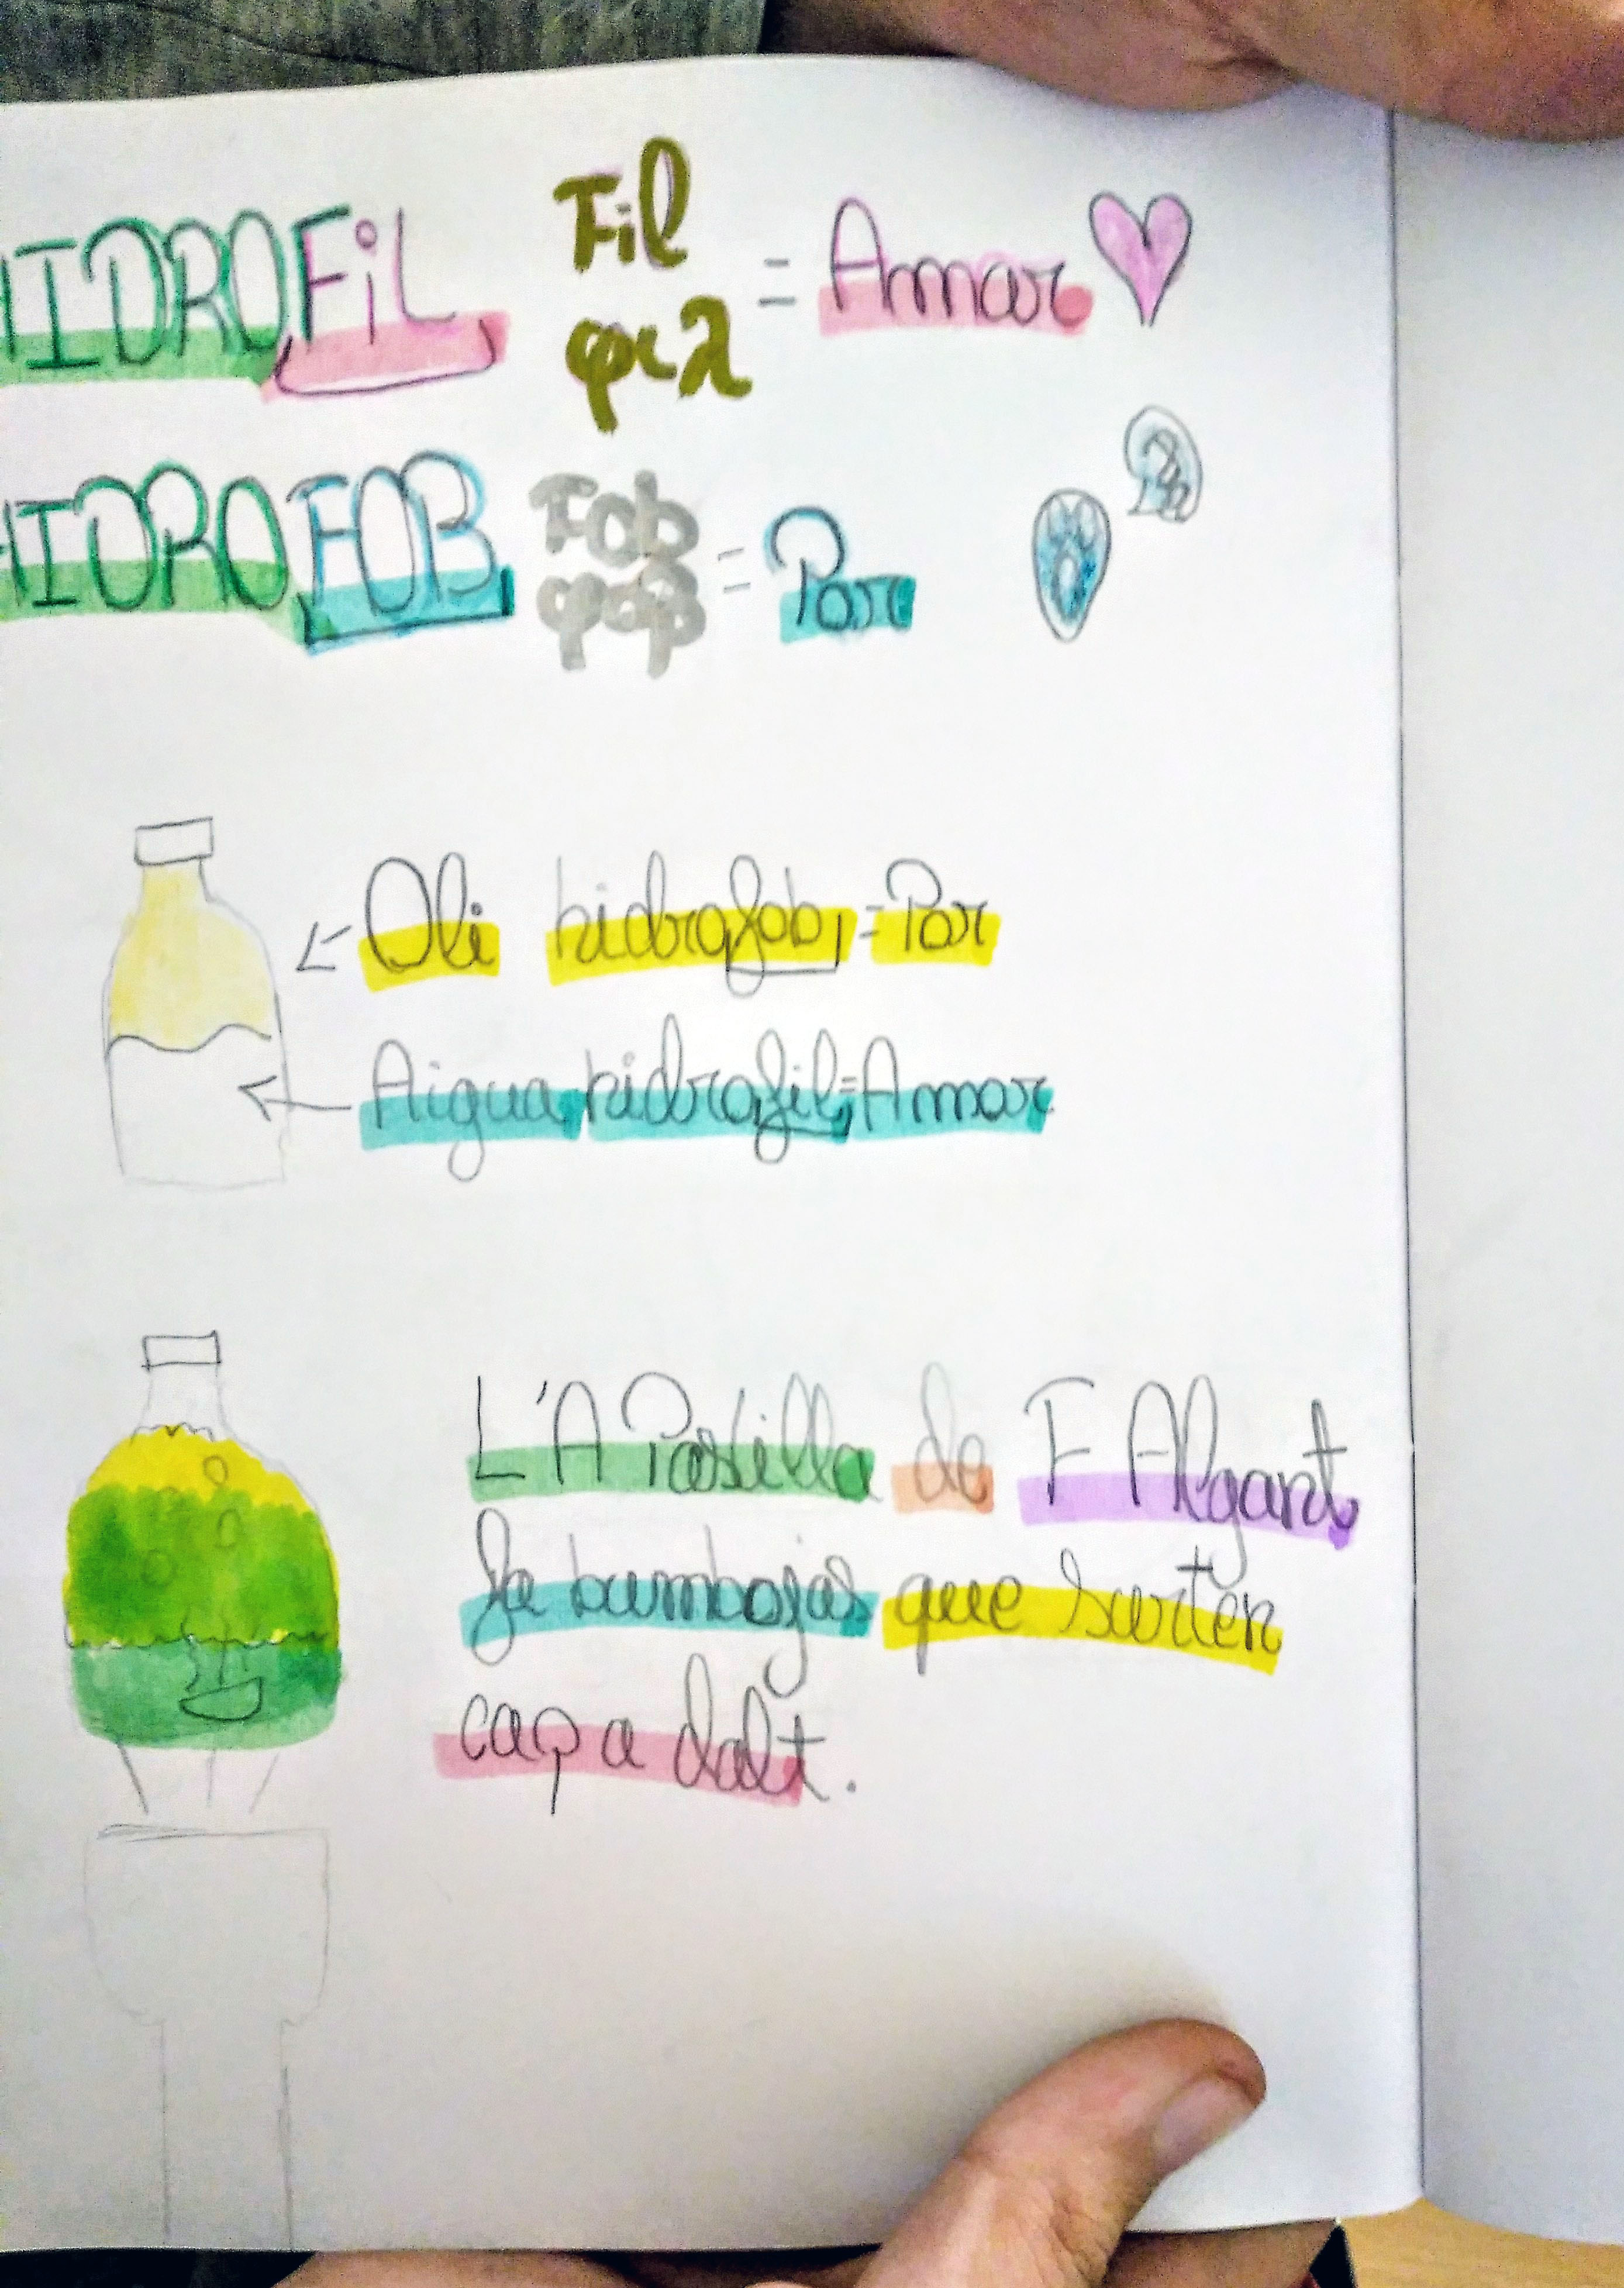 HIDROFiL Fil = Amar
φιλ
HIDROFOB Fob = Por
φοβ
Oli hidrofob = Por
Aigua hidrofil = Amor
L'A Pastilla de F Algant
fa bumbojas que surten
cap a dalt.